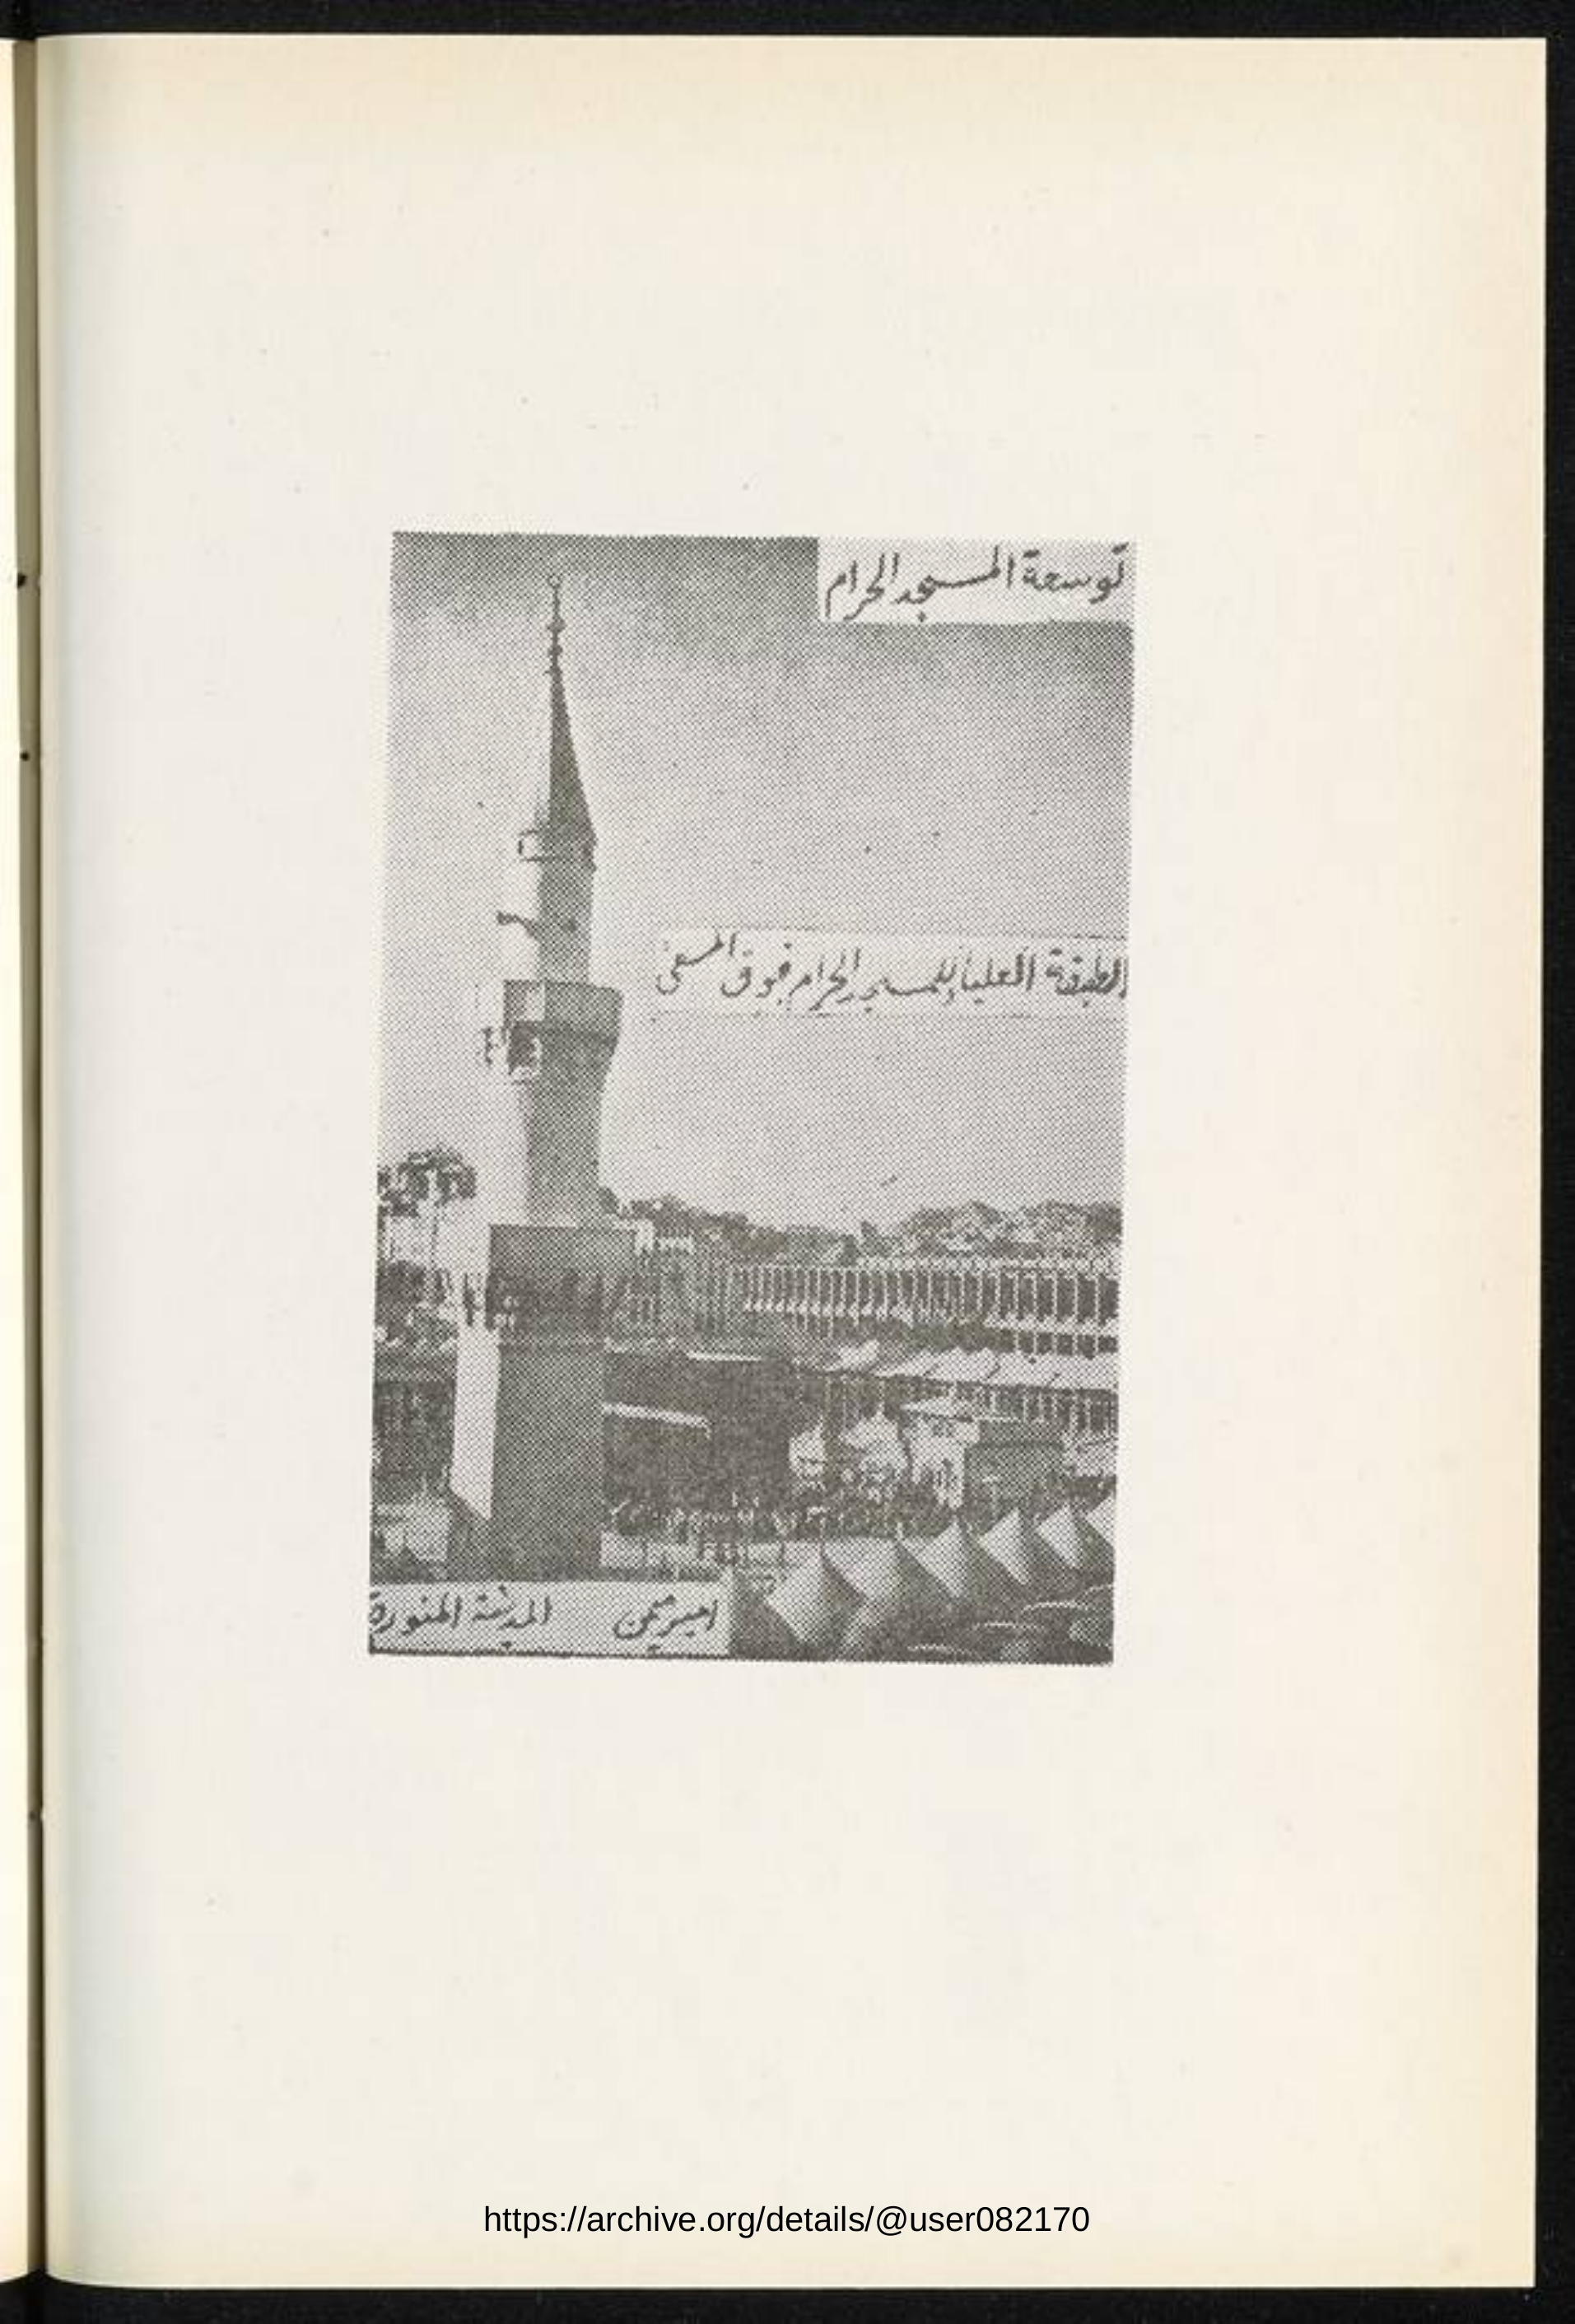 توسعة المسجد الحرام
الطبقة العليا للمسجد الحرام فوق المسعى
امير ميمن المدينة المنورة
https://archive.org/details/@user082170